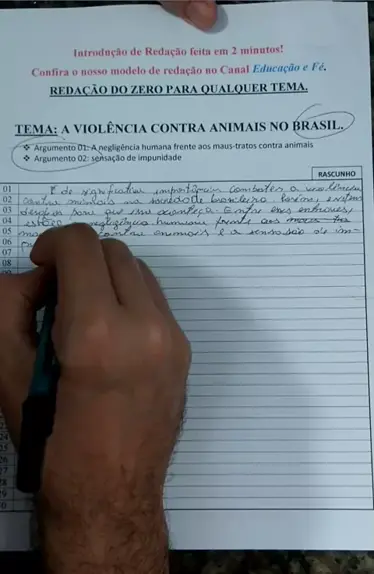 Introdução de Redação feita em 2 minutos!
Confira o nosso modelo de redação no Canal Educação e Fé.
REDAÇÃO DO ZERO PARA QUALQUER TEMA.
TEMA: A VIOLÊNCIA CONTRA ANIMAIS NO BRASIL.
❖ Argumento 01: A negligência humana frente aos maus-tratos contra animais
❖ Argumento 02: sensação de impunidade
RASCUNHO
01 É de significativa importância combater a violência
02 contra animais na sociedade brasileira. Porém, existem
03 desafios para que isso aconteça. Entre esses entraves,
04 estão a negligência humana frente aos maus-tra
05 contra animais e a sensação de im-
06
07
08